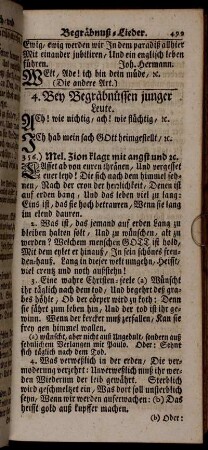 Begräbnuß-Lieder. 499
Ewig, ewig werden wir In dem paradiß allhier
Mit einander jubiliren, Und ein englisch leben
führen. Joh. Hermann.
WElt, Ade! ich bin dein müde, ꝛc.
(Die andere Art.)
4. Bey Begräbnüssen junger
Leute.
ACh! wie nichtig, ach! wie flüchtig, ꝛc.
ICh hab mein sach GOtt heimgestellt, ꝛc.
316. Mel. Zion klagt mit angst und ꝛc.
LAsset ab von euren thränen, Und vergesset
euer leyd! Die sich nach dem himmel
sehnen, Nach der cron der herrlichkeit, Denen ist
auf erden bang, Und das leben viel zu lang;
Eins ist, das sie hoch betrauren, Wenn sie lang
im elend dauren.
2. Was ist, das jemand auf erden Lang zu
bleiben wünschen mag? Möcht er nicht erlöset
werden? Welchem menschen GOTT ist hold,
Mit dem eylet er hinauf, In sein schönes freuden-
haus. Lang in dieser welt umgehn, Heist
viel creutz und noth ausstehn!
3. Eine wahre Christen-seele (a) Wünscht
ihr täglich nach dem tod, Und begehrt des grabes
höhle, Ob der cörper wird zu koth; Denn
die seel ist unverletzt, Wird in freud und wonn
gesetzt. Wenn der kercker muß zerfallen, Kan sie
frey gen himmel wallen.
(a) wünscht, aber nicht aus Ungedult, sondern aus
sehnlichem Verlangen mit Paulo. Oder: Sehnt
sich täglich nach dem Tod.
4. Was verweßlich in der erden, Die verwesung
gar verzehrt: Unverweßlich muß ihr werden
Wiederum der leib gewährt. Sterblich
wird geschmeltzet ein, Was dort soll unsterblich
seyn, Wenn wir werden auferwachen: (b) Das
heist gold aus kupffer machen.
(b) Oder: